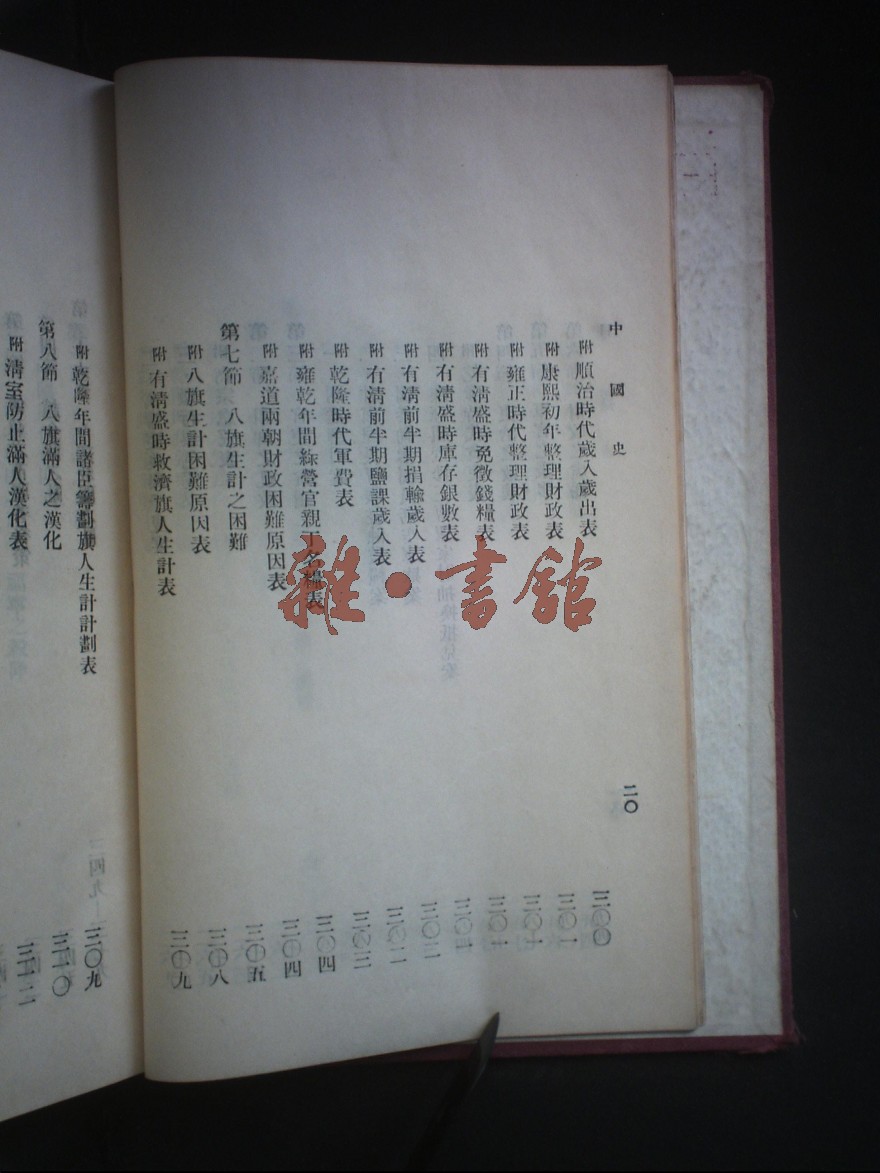 中國史
二〇
附 順治時代歲入歲出表 三〇〇
附 康熙初年整理財政表 三〇一
附 雍正時代整理財政表 三〇一
附 有清盛時免徵錢糧表 三〇一
附 有清盛時庫存銀數表
附 有清前半期捐輸歲入表 三〇二
附 有清前半期鹽課歲入表 三〇二
附 乾隆時代軍費表 三〇三
附 雍乾年間綠營官親丁名糧表 三〇四
附 嘉道兩朝財政困難原因表 三〇四
第七節 八旗生計之困難 三〇五
附 八旗生計困難原因表 三〇八
附 有清盛時救濟旗人生計表 三〇九
附 乾隆年間諸臣籌劃旗人生計計劃表 三〇九
第八節 八旗滿人之漢化 三一〇
附 清室防止滿人漢化表 三一二
雜·書館